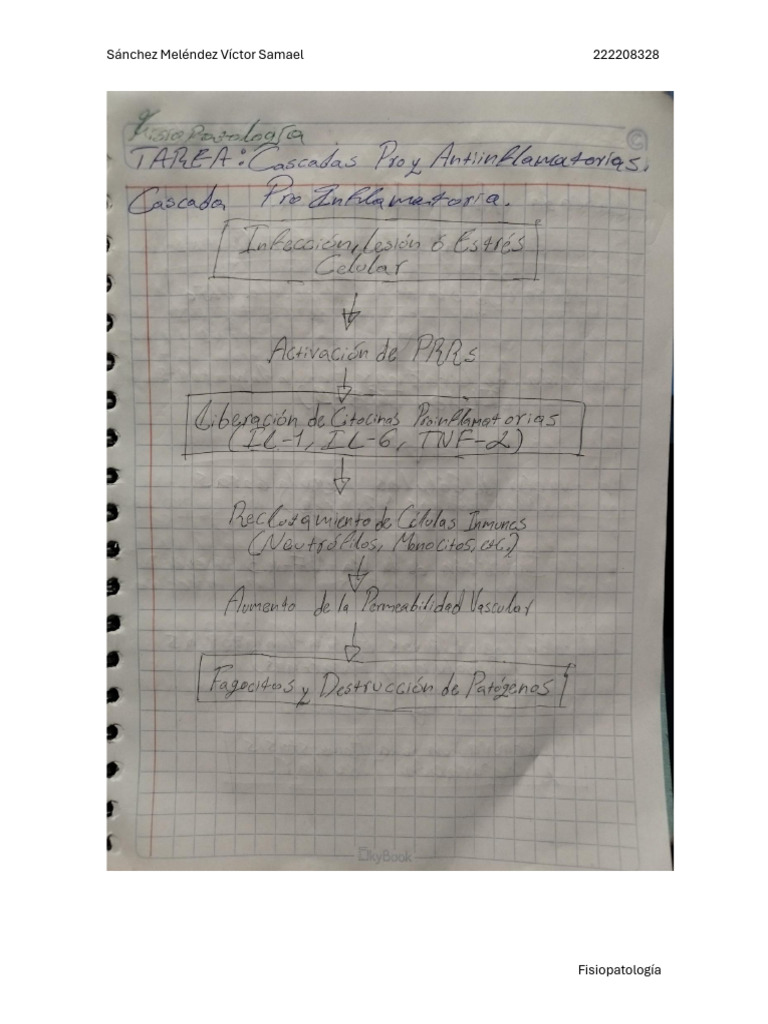 Sánchez Meléndez Víctor Samael 222208328
Fisiopatología
TAREA: Cascadas Pro y Antiinflamatorias.
Cascada Pro Inflamatoria.
Infección, Lesión ó Estrés
Celular
Activación de PRRs
Liberación de Citocinas Proinflamatorias
(IL-1, IL-6, TNF-α)
Reclutamiento de Células Inmunes
(Neutrófilos, Monocitos, etc.)
Aumento de la Permeabilidad Vascular
Fagocitos y Destrucción de Patógenos
SkyBook
Fisiopatología